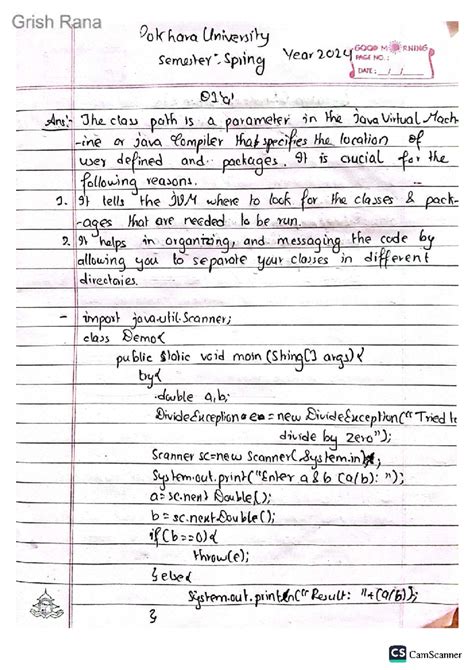 Grish Rana
Pokhara University
Semester:- Spring Year 2024
GOOD MORNING
PAGE NO.:
DATE: / /
Q1 a)
Ans:- The class path is a parameter in the Java Virtual Mach-
-ine or java Compiler that specifies the location of
user defined and packages. It is crucial for the
following reasons.
1. It tells the JVM where to look for the classes & pack-
-ages that are needed to be run.
2. It helps in organizing, and messaging the code by
allowing you to separate your classes in different
directories.
- import java.util.Scanner;
class Demo{
public static void main (String[] args){
try{
double a,b;
DivideException e = new DivideException("Tried to
divide by zero");
Scanner sc=new Scanner(System.in);
System.out.print("Enter a & b (a/b): ");
a = sc.next Double();
b = sc.next Double();
if(b==0){
throw(e);
} else{
System.out.println("Result: "+(a/b));
}
CS CamScanner